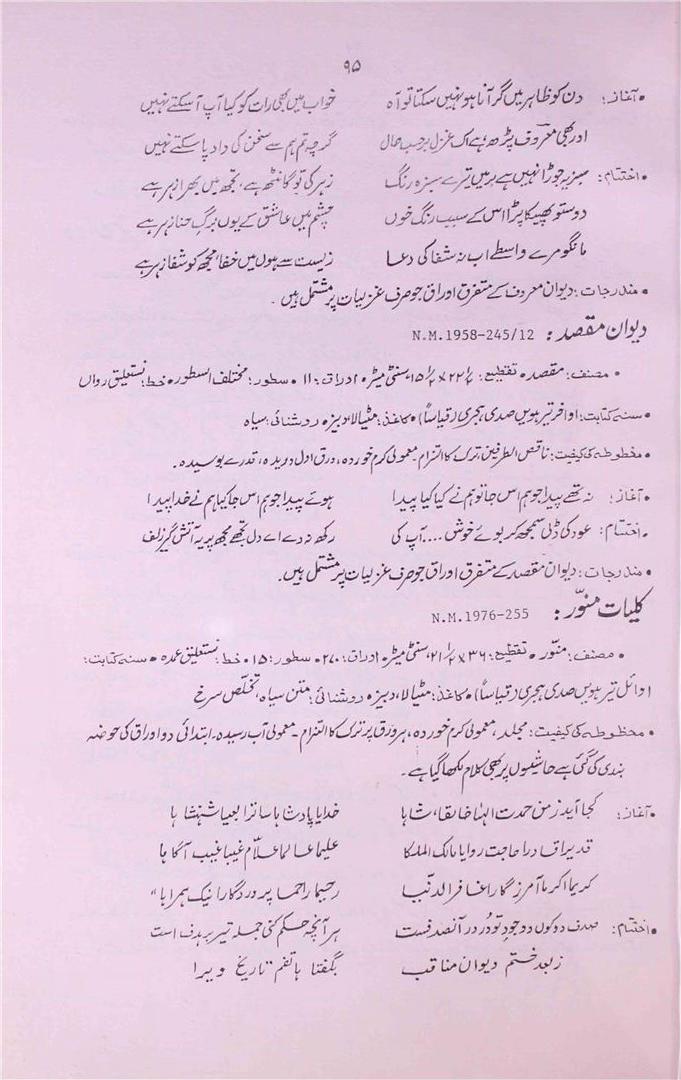 ۹۵
• آغاز: دن کو ظاہر میں گر آنا ہو نہیں سکتا تو آہ خواب میں بھی رات کو کیا آپ آ سکتے نہیں
اور بھی معروف پڑھ، ہے اک غزل برحسب حال گرچہ تم ہم سے سخن کی داد پا سکتے نہیں
• اختتام: سبزیہ جوڑا نہیں ہے بر میں تیرے سبزہ رنگ زہر کی تو گانٹھ ہے، تجھ میں بھرا زہر ہے
دوستو پھیکا پڑا اس کے سبب رنگ خوں چشم میں عاشق کے یوں برگِ حنا زہر ہے
مانگو مرے واسطے اب نہ شفا کی دعا زیست سے ہوں میں خفا، مجھ کو شفا زہر ہے
• مندرجات: دیوان معروف کے متفرق اوراق جو صرف غزلیات پر مشتمل ہیں۔
دیوان مقصد: N.M.1958-245/12
• مصنف: مقصد • تقطیع: ۲۲½ × ۱۵½ سنٹی میٹر • اوراق: ۱۱ • سطور: مختلف السطور • خط: نستعلیق رواں
• سنہ کتابت: اواخر تیرہویں صدی ہجری (قیاساً) • کاغذ: مٹیالا، دبیز • روشنائی: سیاہ
• مخطوطہ کی کیفیت: ناقص الطرفین، ترک کا التزام۔ معمولی کرم خوردہ، ورق اول دریدہ، قدرے بوسیدہ۔
• آغاز: نہ تھے پیدا جو ہم اس جا تو ہم نے کیا کیا پیدا ہوئے پیدا جو ہم اس جا کیا ہم نے خدا پیدا
• اختتام: عود کی ڈلی سمجھ کر بوئے خوش .... آپ کی رکھ نہ دے اے دل تجھے مجھ پر یہ آتش گیر زلف
• مندرجات: دیوان مقصد کے متفرق اوراق جو صرف غزلیات پر مشتمل ہیں۔
کلیات منوّر: N.M.1976-255
• مصنف: منوّر • تقطیع: ۳۶ × ۲۱½ سنٹی میٹر • اوراق: ۲۷۰ • سطور: ۱۵ • خط: نستعلیق عمدہ • سنہ کتابت:
اوائل تیرہویں صدی ہجری (قیاساً) • کاغذ: مٹیالا، دبیز • روشنائی: متن سیاہ، تخلّص سرخ
• مخطوطہ کی کیفیت: مجلد، معمولی کرم خوردہ، ہر ورق پر ترک کا التزام۔ معمولی آب رسیدہ۔ ابتدائی دو اوراق کی حوضہ
بندی کی گئی ہے حاشیوں پر بھی کلام لکھا گیا ہے۔
• آغاز: کجا آید ز من حمدت الٰہا خالقا، شاہا خدایا پادشاہا ساترا لعیبا شہنشاہا
قدیرا قادرا حاجت روایا مالک الملکا علیما عالما علّام غیبا غیب آگاہا
کریما اکرما آمرزگارا غافر الذنبا رحیما راحما پروردگارا نیک ہمراہا"
• اختتام: صدف دو کون و وجودِ تو دُر در آنصدفست ہر آنچہ حکم کنی جملہ تیر بر ہدف است
ز بعد ختم دیوان مناقب بگفتا ہاتفم "تاریخ ویرا